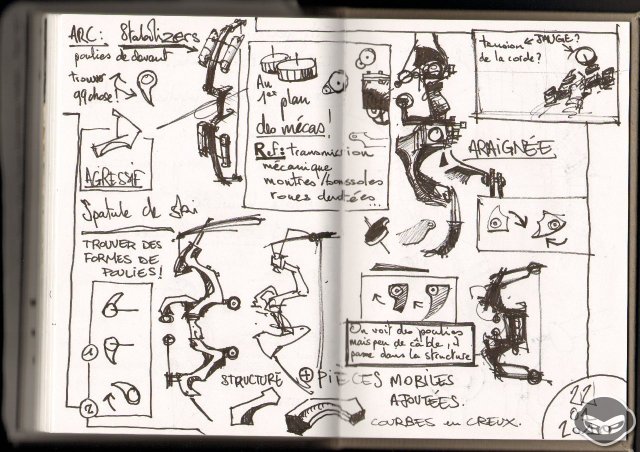 ARC: Stabilizers
poulies de devant
trouver
qq chose!
AGRESSIF
Spatule de ski
TROUVER DES
FORMES DE
POULIES!
1
2
Au
1er plan
des mécas!
Ref: transmission
mécanique
montres/boussoles
roues dentées...
tension
de la corde?
JAUGE?
ARAIGNÉE
On voit des poulies
mais peu de câble,
passe dans la structure
STRUCTURE + PIÈCES MOBILES
AJOUTÉES.
COURBES en CREUX.